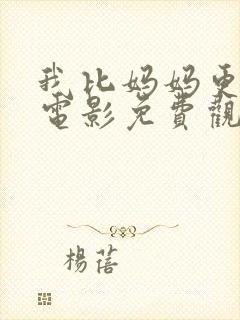 我比妈妈更
電影免費觀
楊蓓